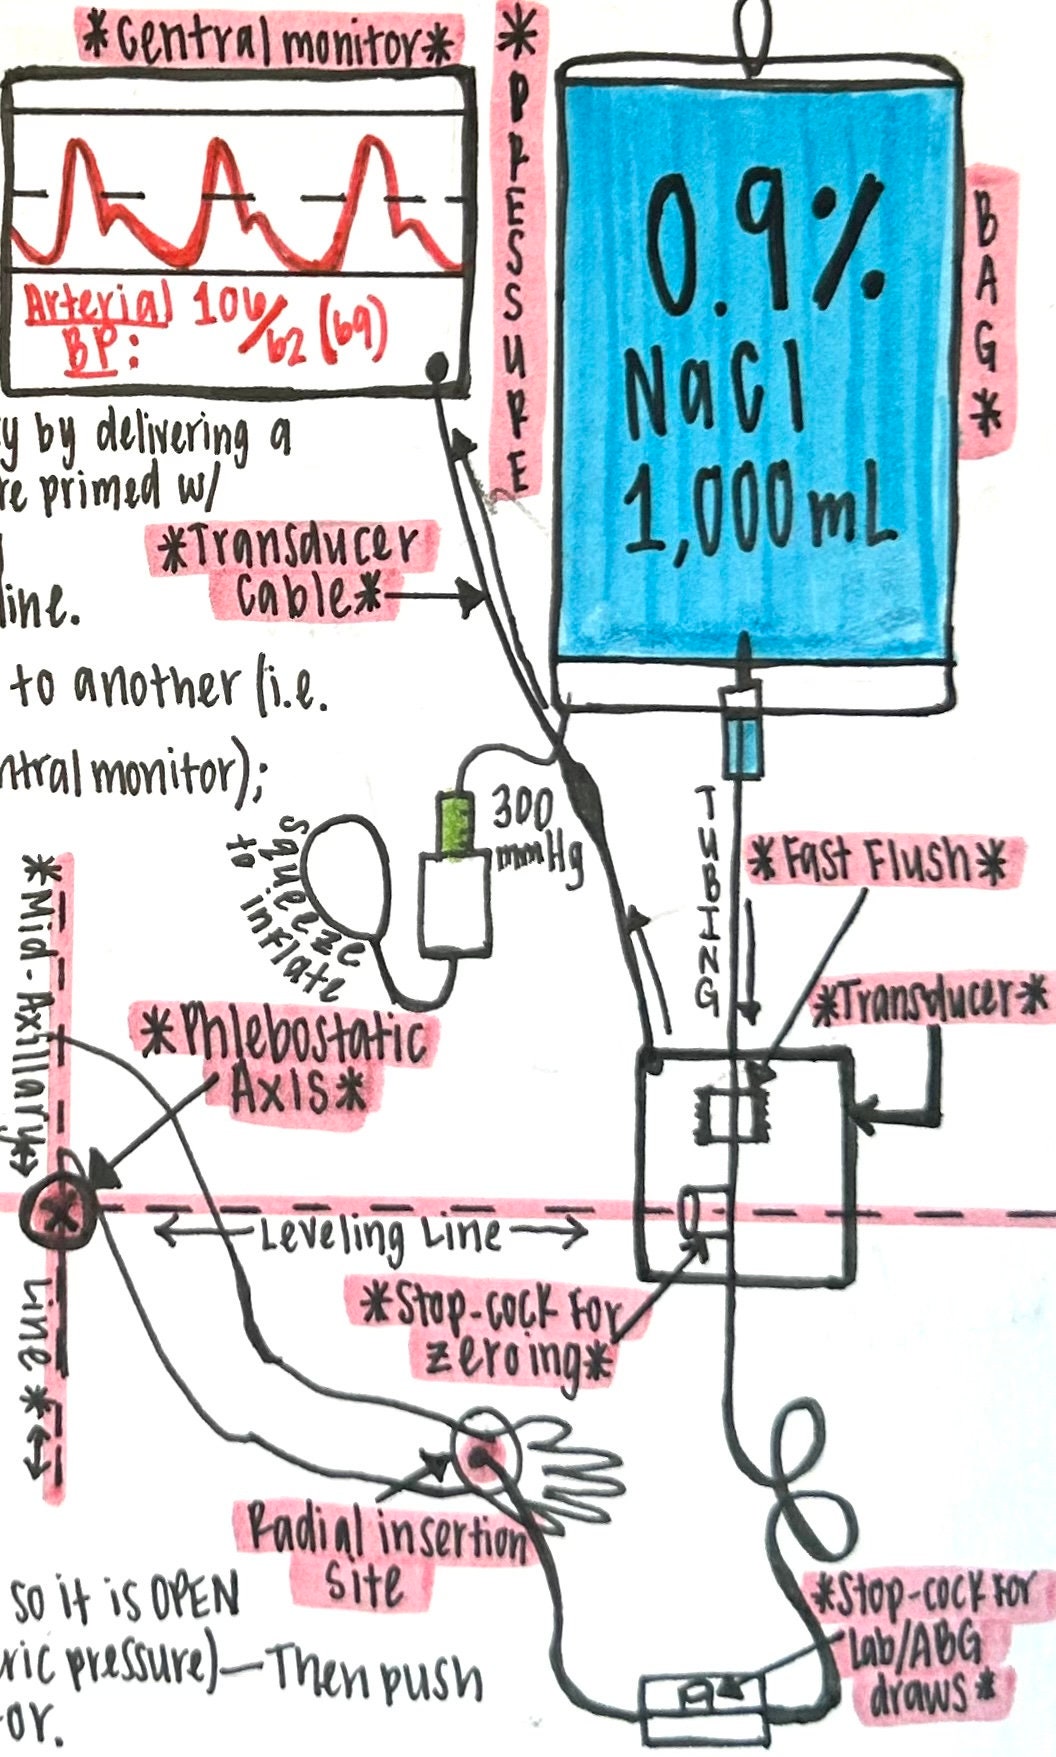 *Central monitor*
*PRESSURE
BAG*
0.9%
NaCl
1,000 mL
Arterial 106/62 (69)
BP:
y by delivering a
re primed w/
*Transducer
Cable*
line.
to another (i.e.
ntral monitor);
300
mmHg
squeeze
to inflate
TUBING
*Fast Flush*
*Transducer*
*Mid-Axillary
Line*
*Phlebostatic
Axis*
*
Leveling Line
*Stop-cock For
zeroing*
Radial insertion
Site
*Stop-cock For
Lab/ABG
draws*
so it is OPEN
ric pressure)—Then push
or.